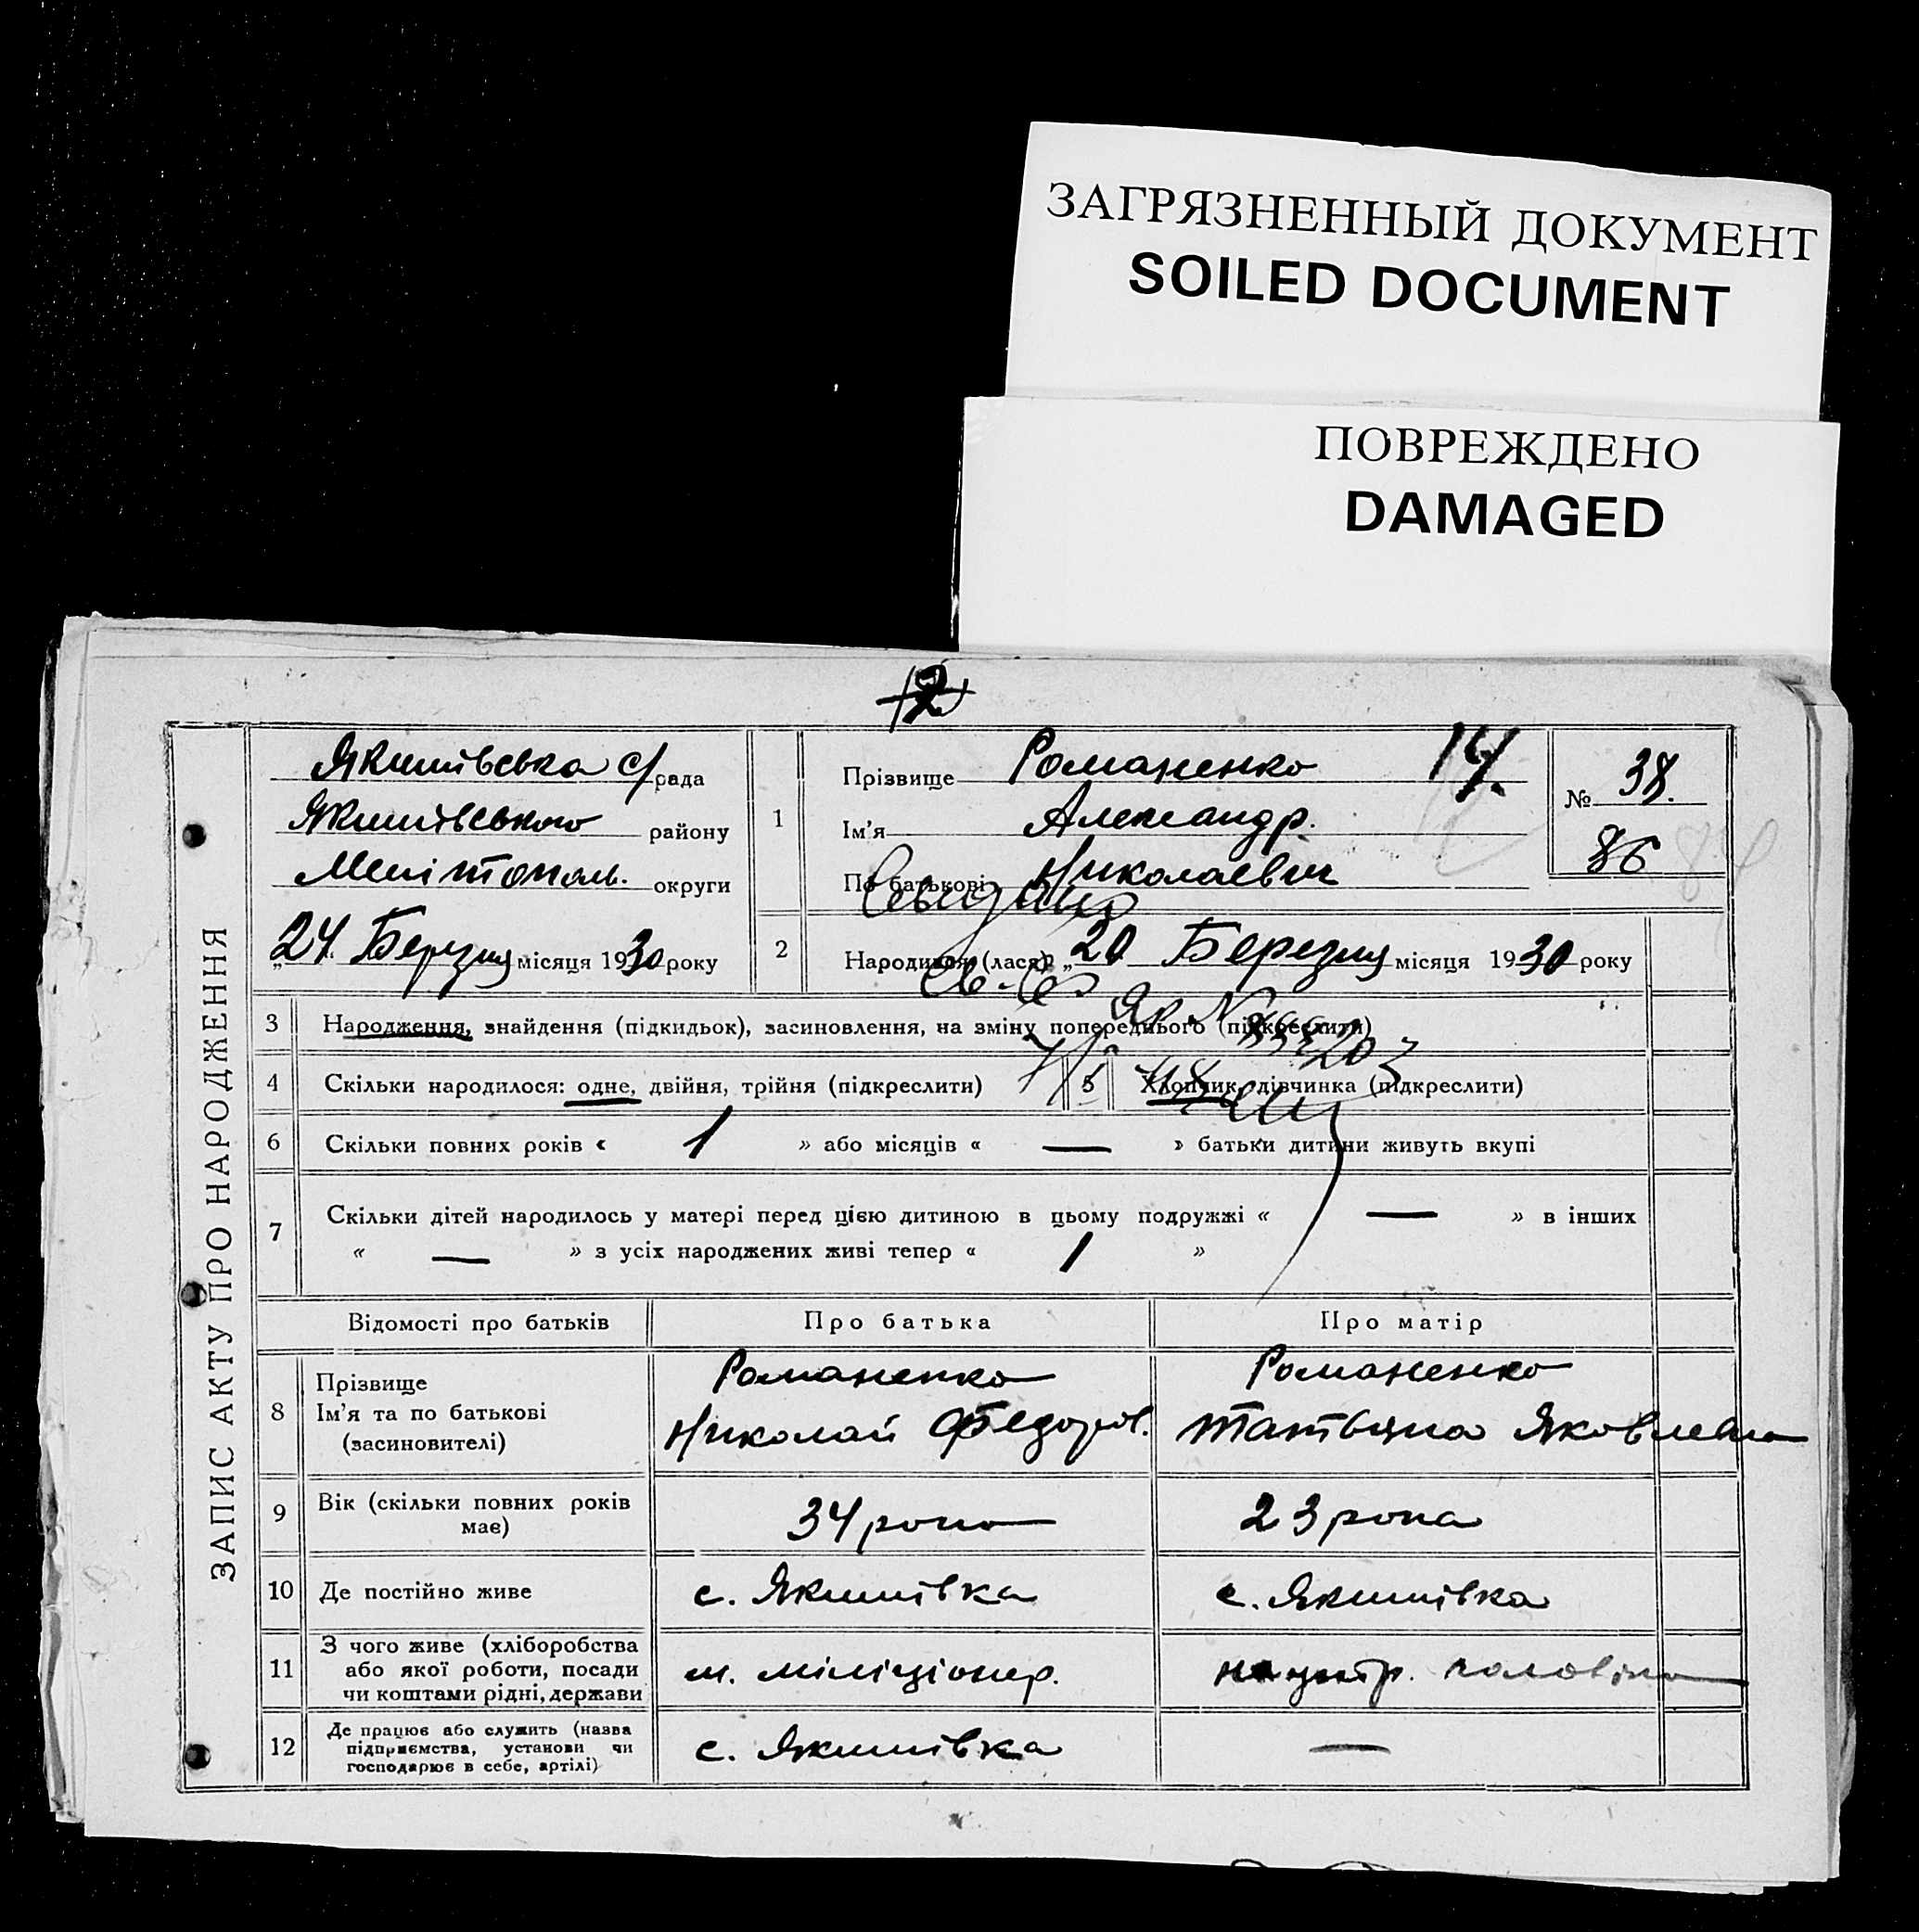 ЗАГРЯЗНЕННЫЙ ДОКУМЕНТ
SOILED DOCUMENT
ПОВРЕЖДЕНО
DAMAGED
12
ЗАПИС АКТУ ПРО НАРОДЖЕННЯ
Якимівська с/рада
Якимівського району
Мелітополь. округи
„24. Березня місяця 1930 року
1
Прізвище Романенко
14.
Ім'я Александр.
По батькові Николаевич
№ 38.
86
84
2
Народився (лася) „20 Березня місяця 1930 року
3 Народження, знайдення (підкидьок), засиновлення, на зміну попереднього (підкреслити)
4 Скільки народилося: одне, двійня, трійня (підкреслити) 5 Хлопчик, дівчинка (підкреслити)
6 Скільки повних років « 1 » або місяців « — » батьки дитини живуть вкупі
7 Скільки дітей народилось у матері перед цією дитиною в цьому подружжі « — » в інших
« — » з усіх народжених живі тепер « 1 »
Відомості про батьків Про батька Про матір
8 Прізвище Романенко Романенко
Ім'я та по батькові Николай Федоров. Татьяна Яковлевна
(засиновителі)
9 Вік (скільки повних років має) 34 рока 23 рока
10 Де постійно живе с. Якимівка с. Якимівка
11 З чого живе (хліборобства
або якої роботи, посади м. міліціонер.
чи коштами рідні, держави
12 Де працює або служить (назва
підприємства, установи чи с. Якимівка —
господарює в себе, артілі)